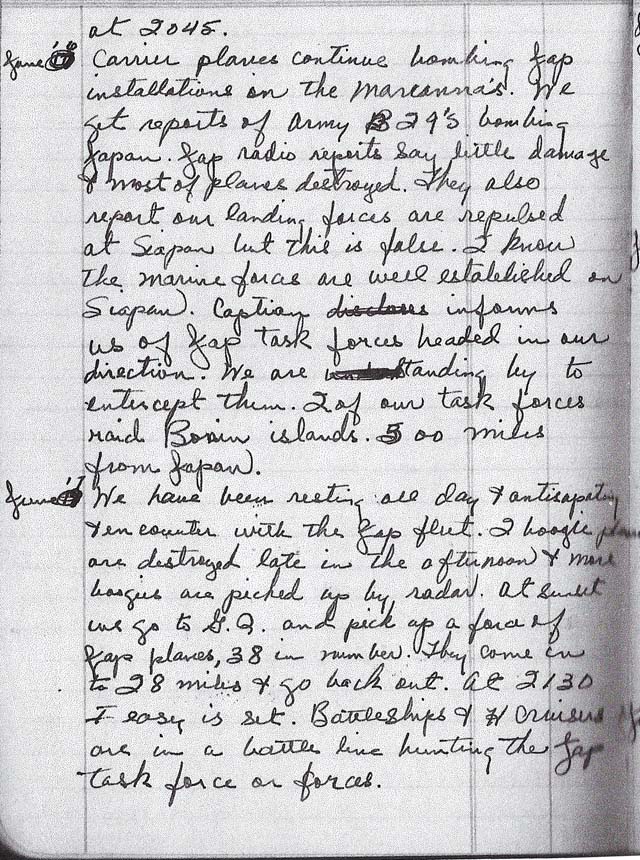 at 2045.
June 16 Carrier planes continue bombing Jap
installations on the Mareanna's. We
get reports of Army B 29's bombing
Japan. Jap radio reports say little damage
& most of planes destroyed. They also
report our landing forces are repulsed
at Siapan but this is false. I know
the marine forces are well established on
Siapan). Captian informs
us of Jap task forces headed in our
direction. We are standing by to
entercept them. 2 of our task forces
raid Bonin islands. 500 miles
from Japan).
June 17 We have been resting all day & antisapating
& encounter with the Jap fleet. 2 boogie
are destroyed late in the afternoon & more
boogies are picked up by radar. At sunset
we go to G.Q. and pick up a force of
Jap planes, 38 in number. They come in
to 28 miles & go back out. At 2130
I easy is set. Battleships & H Cruisers
are in a battle line hunting the Jap
task force or forces.